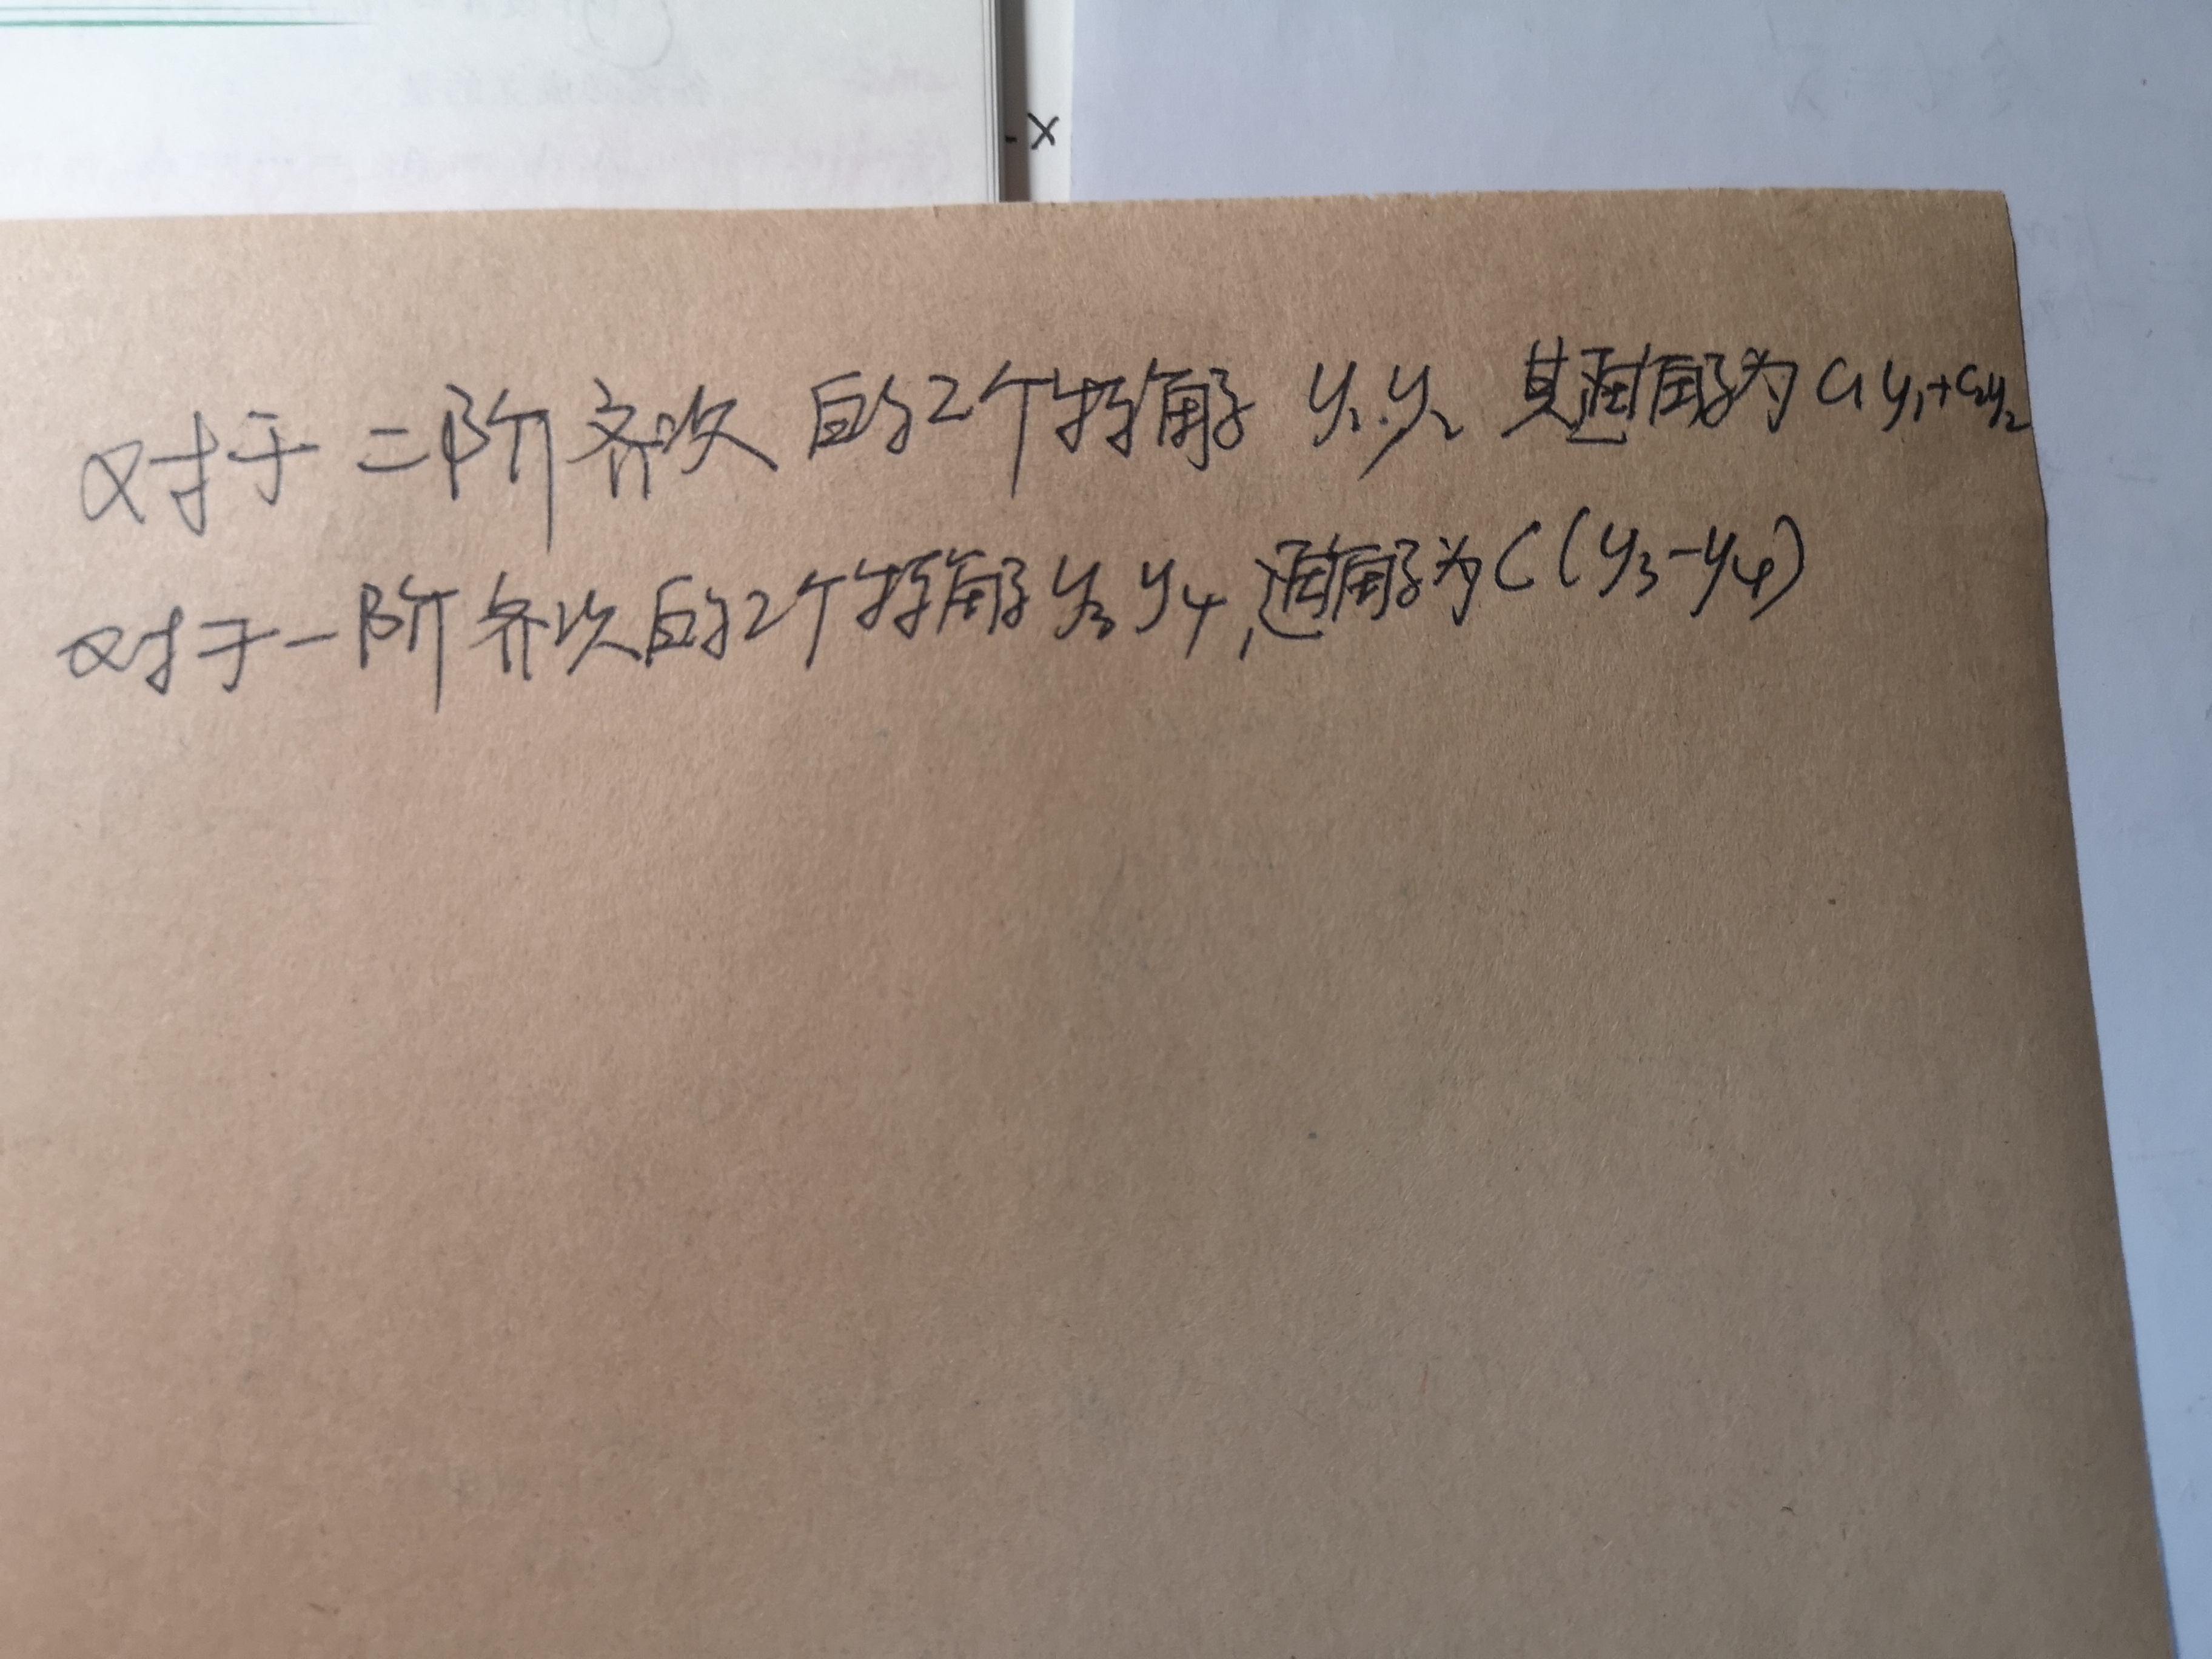 -x
对于二阶齐次的2个特解 y₁.y₂ 其通解为 C₁y₁+C₂y₂
对于一阶齐次的2个特解 y₃ y₄,通解为 C(y₃-y₄)